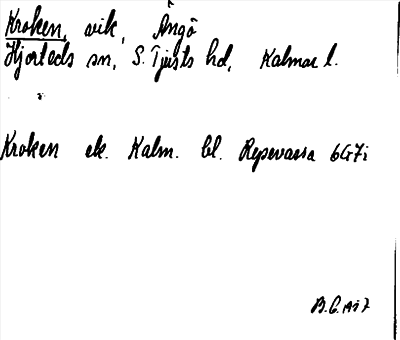 Kroken, vik, Ängö
Hjorteds sn, S. Tjusts hd, Kalmar l.
Kroken ek. Kalm. bl. Repevassa 6G7i
B.G. 1937